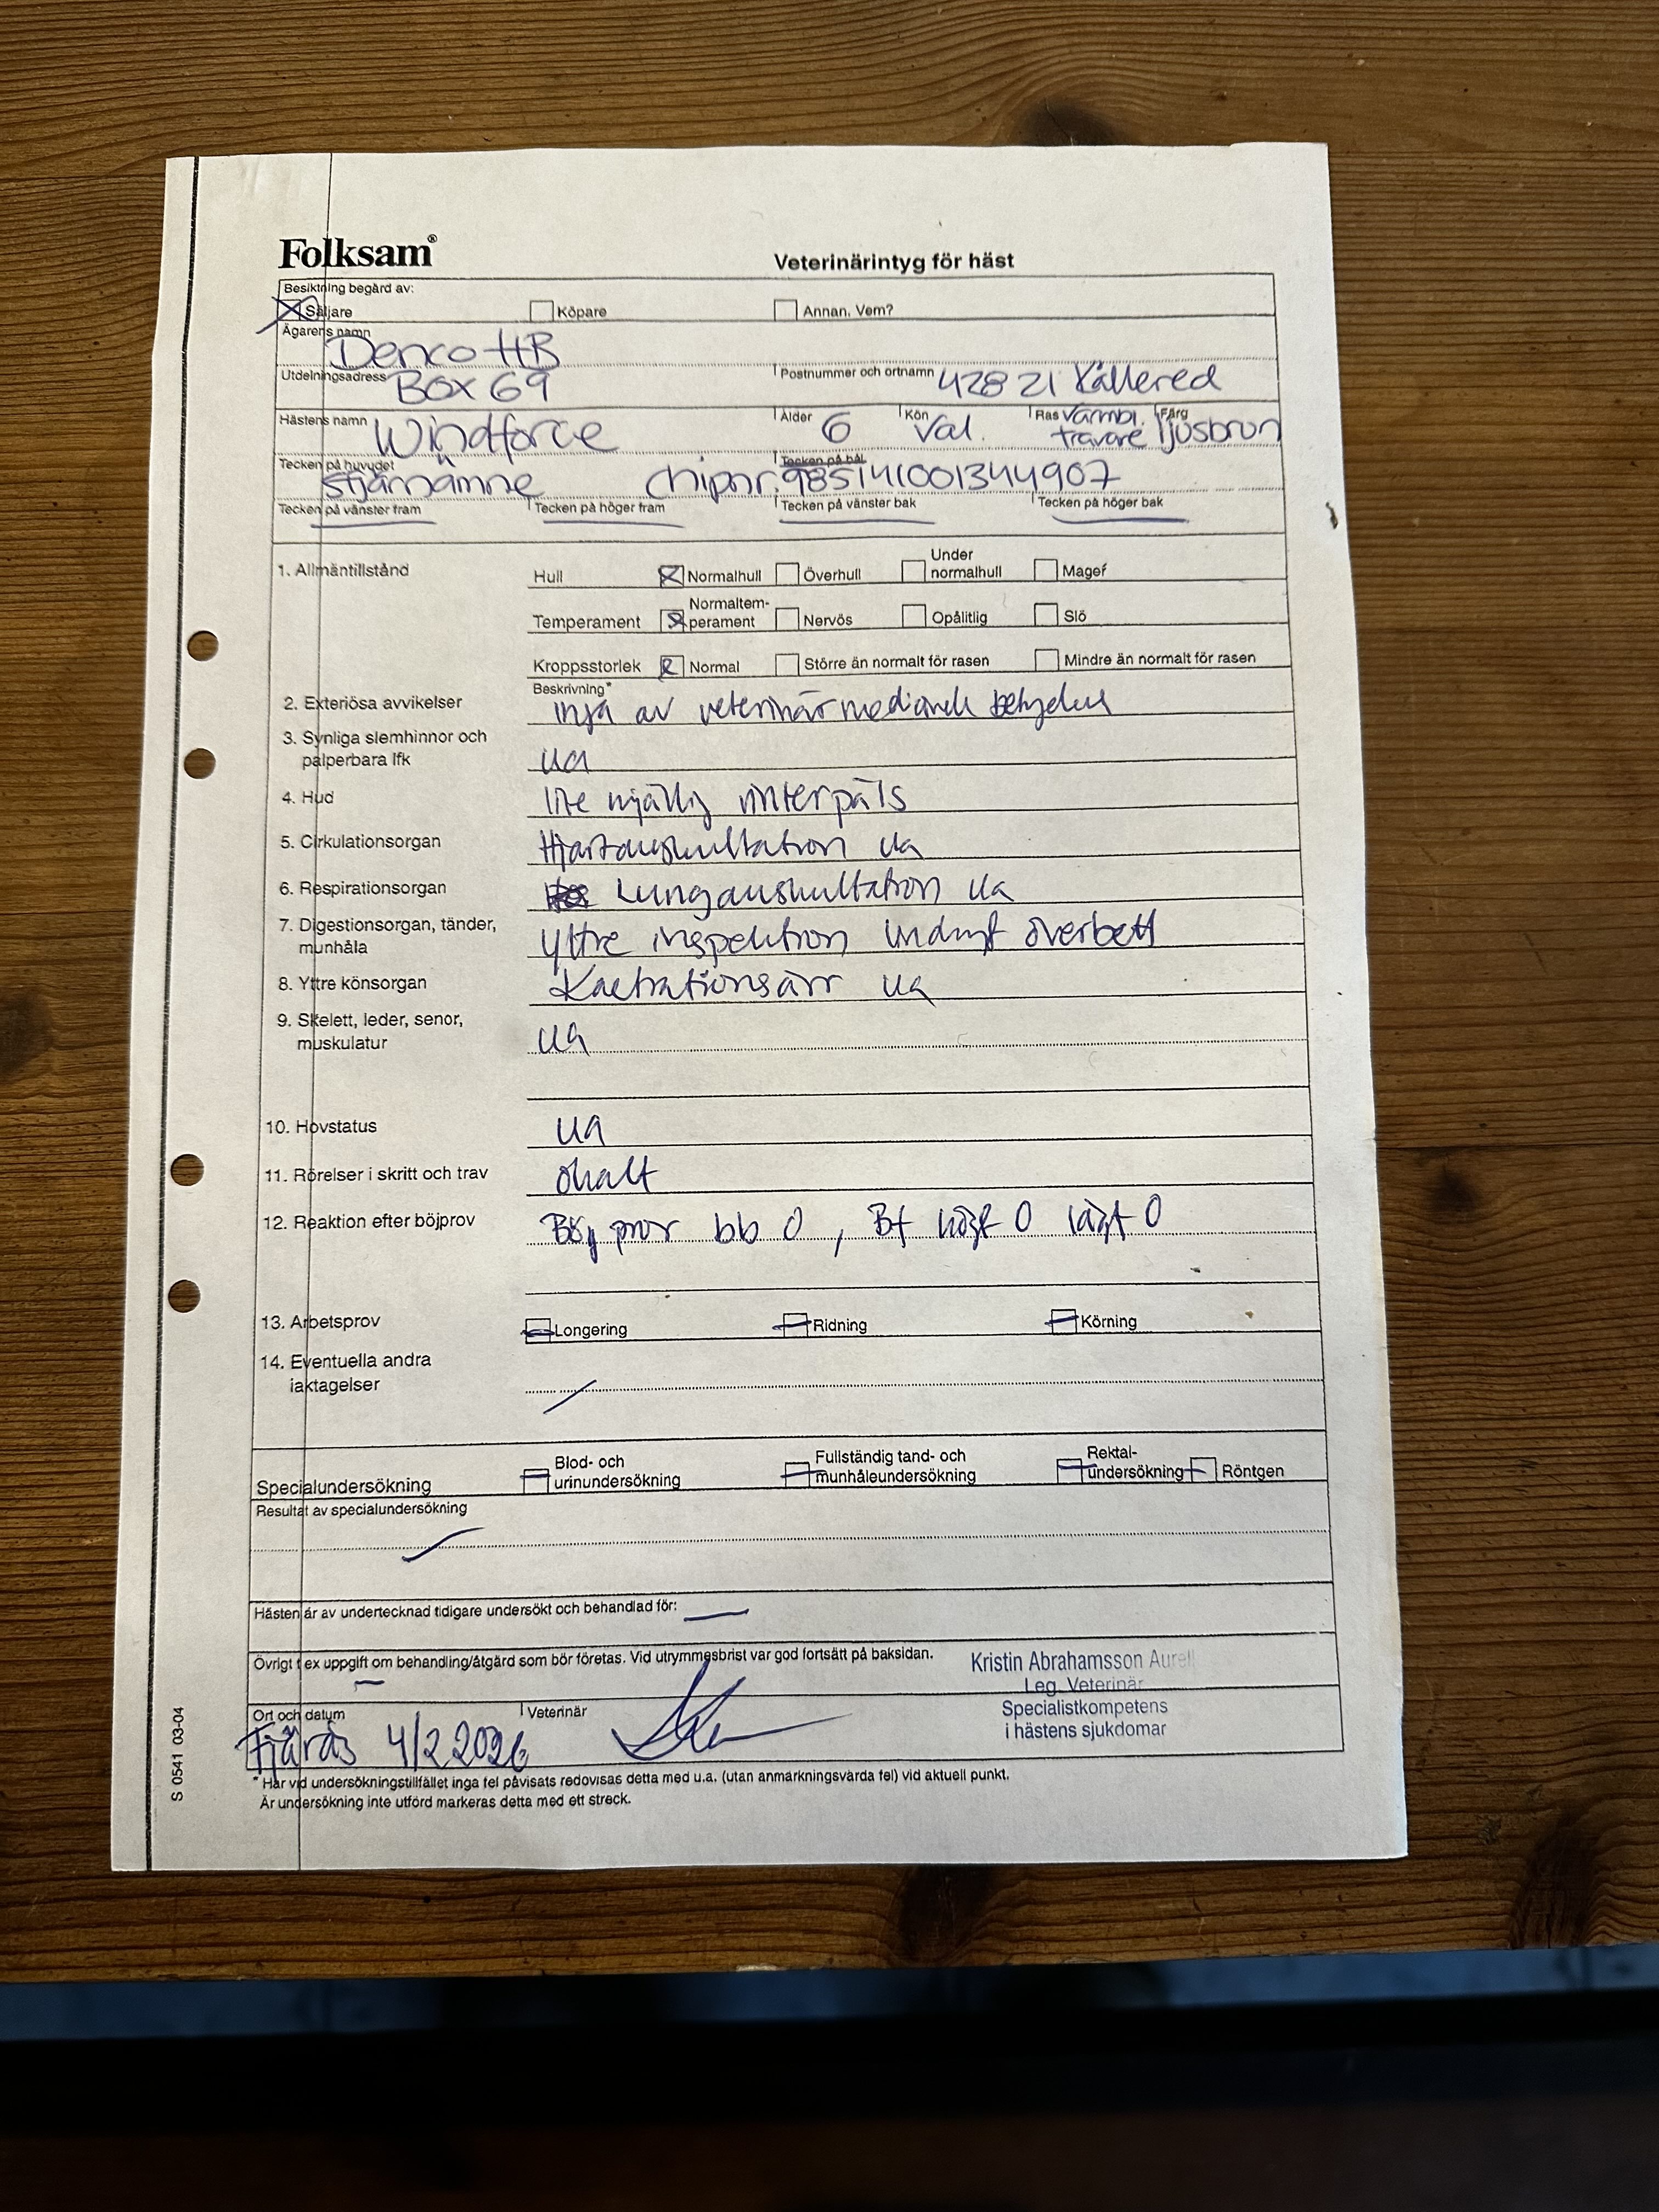 Folksam®
Veterinärintyg för häst
Besiktning begärd av:
Säljare Köpare Annan. Vem?
Ägarens namn
Denco HB
Utdelningsadress Box 69 Postnummer och ortnamn 428 21 Kållered
Hästens namn Windforce Ålder 6 Kön Val. Ras Varmbl. travare Färg ljusbrun
Tecken på huvudet Tecken på bål
stjärnämne chipnr. 985141001344907
Tecken på vänster fram Tecken på höger fram Tecken på vänster bak Tecken på höger bak
1. Allmäntillstånd Hull Normalhull Överhull Under normalhull Magef
Temperament Normaltem-perament Nervös Opålitlig Slö
Kroppsstorlek Normal Större än normalt för rasen Mindre än normalt för rasen
Beskrivning*
2. Exteriösa avvikelser inga av veterinärmedicinsk betydelse
3. Synliga slemhinnor och
palperbara lfk ua
4. Hud lite mjällig vinterpäls
5. Cirkulationsorgan Hjärtauskultation ua
6. Respirationsorgan Lungauskultation ua
7. Digestionsorgan, tänder,
munhåla Yttre inspektion lindrigt överbett
8. Yttre könsorgan Kastrationsärr ua
9. Skelett, leder, senor,
muskulatur ua
10. Hovstatus ua
11. Rörelser i skritt och trav ohalt
12. Reaktion efter böjprov Böjprov bb 0, Bf högt 0 lågt 0
13. Arbetsprov Longering Ridning Körning
14. Eventuella andra
iaktagelser
Specialundersökning Blod- och urinundersökning Fullständig tand- och munhåleundersökning Rektal-undersökning Röntgen
Resultat av specialundersökning
Hästen är av undertecknad tidigare undersökt och behandlad för:
Övrigt t ex uppgift om behandling/åtgärd som bör företas. Vid utrymmesbrist var god fortsätt på baksidan.
Kristin Abrahamsson Aurell
Leg. Veterinär
Specialistkompetens
i hästens sjukdomar
Ort och datum Veterinär
Fjärås 4/2 2026
* Har vid undersökningstillfället inga fel påvisats redovisas detta med u.a. (utan anmärkningsvärda fel) vid aktuell punkt.
Är undersökning inte utförd markeras detta med ett streck.
S 0541 03-04